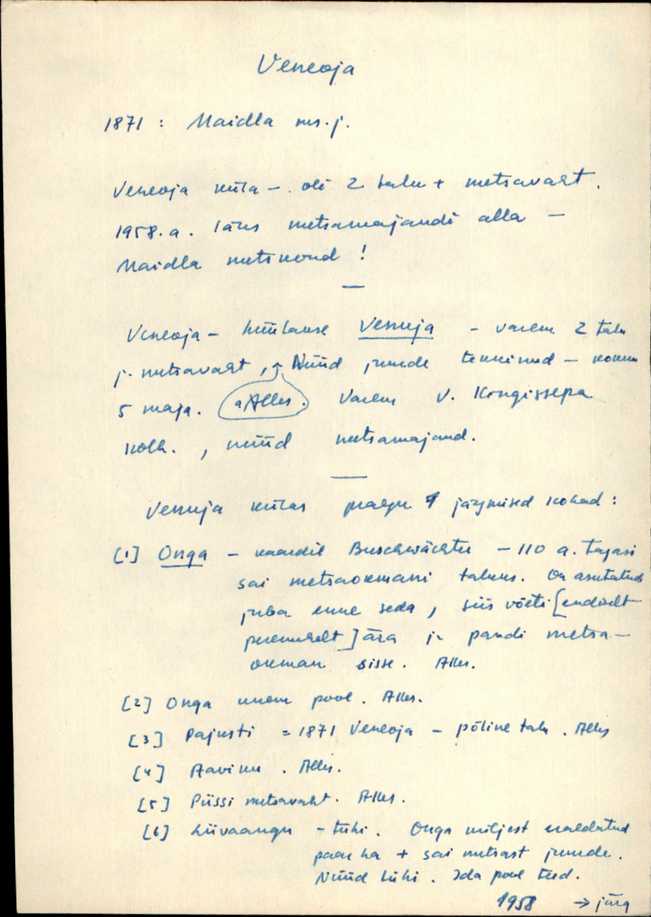 Veneoja
1871 : Maidla ms. j.
Veneoja küla - oli 2 talu + metsavaht.
1958.a. läks metsamajandi alla -
Maidla metskond !
Veneoja - hüütakse Vennja - varem 2 talu
j. metsavaht, Nüüd juurde tekkinud - kokku
5 maja. Alles. Varem V. Kingissepa
kolh., nüüd metsamajand.
Vennja külas praegu järgmised kohad :
[1] Onga - kaardil Buschwächter - 110 a. tagasi
sai metsaülemani taluks. On asutatud
juba enne seda, siis võeti [endiselt
peremehelt] ära ja pandi metsa-
sisse. Alles.
[2] Onga unem pool. Alles.
[3] Pajusti = 1871 Veneoja - põline talu. Alles
[4] Aaviku. Alles.
[5] Püssi metsavaht. Alles.
[6] Liivaangu - tühi. Onga küljest eraldatud
paar ha + sai metsast juurde.
Nüüd tühi. Ida pool teed.
1958 → järg